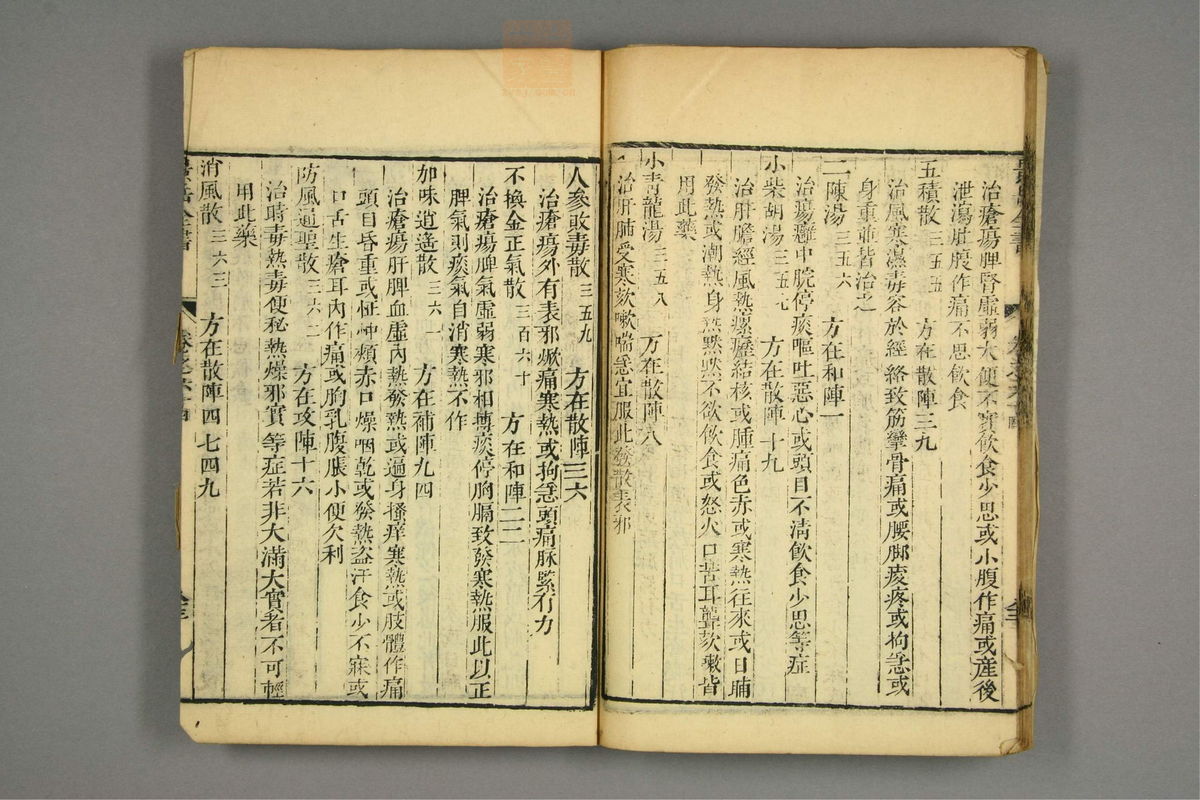 治瘡瘍脾腎虛弱大便不實飲食少思或小腹作痛或產後
泄瀉肚腹作痛不思飲食
五積散三五五 方在散陣三九
治風寒濕毒客於經絡致筋攣骨痛或腰脚痠疼或拘急或
身重並皆治之
二陳湯三五六 方在和陣一
治瘍癰中脘停痰嘔吐惡心或頭目不清飲食少思等症
小柴胡湯三五七 方在散陣十九
治肝膽經風熱瘰癧結核或腫痛色赤或寒熱往來或日晡
發熱或潮熱身熱默默不欲飲食或怒火口苦耳聾欬嗽皆
用此藥
小青龍湯三五八 方在散陣八
治肝肺受寒欬嗽喘急宜服此發散表邪
人參敗毒散三五九 方在散陣三六
治瘡瘍外有表邪焮痛寒熱或拘急頭痛脉緊有力
不換金正氣散三百六十 方在和陣二二
治瘡瘍脾氣虛弱寒邪相摶痰停胸膈致發寒熱服此以正
脾氣則痰氣自消寒熱不作
加味逍遙散三六一 方在補陣九四
治瘡瘍肝脾血虛內熱發熱或遍身搔痒寒熱或肢體作痛
頭目昏重或怔忡頰赤口燥咽乾或發熱盜汗食少不寐或
口舌生瘡耳內作痛或胸乳腹脹小便欠利
防風通聖散三六二 方在攻陣十六
治時毒熱毒便秘熱燥邪實等症若非大滿大實者不可輕
用此藥
消風散三六三 方在散陣四七四九
景岳全書 卷之六十四